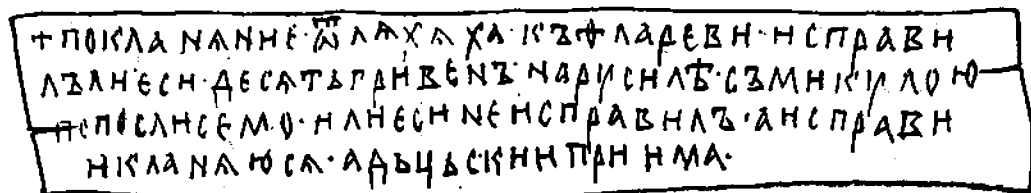 + ПОКЛАНѦНИЕ·Ѿ ЛѦХѦХА·КЪФЛАРЕВИ·ИСПРАВИ
ЛЪЛИЕСИ·ДЕСѦТЬГРИВЕНЪ·НАРУСИЛѢ·СЪМИКУЛОЮ
ПСПОСЛИСЕМО·ИЛИЕСИНЕИСПРАВИЛЪ·АИСПРАВИ
ИКЛАНѦЮСѦ·АДЬЦЬСКИИПРИИМА·